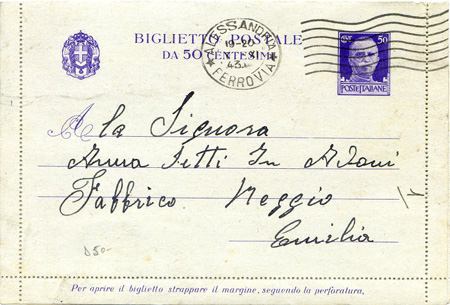 BIGLIETTO POSTALE
DA 50 CENTESIMI
ALESSANDRIA
19-20
FERROVIA
50
POSTE ITALIANE
A la Signora
Anna Tetti In Adani
Fabbrico Reggio
Emilia
D50-
Per aprire il biglietto strappare il margine, seguendo la perforatura.